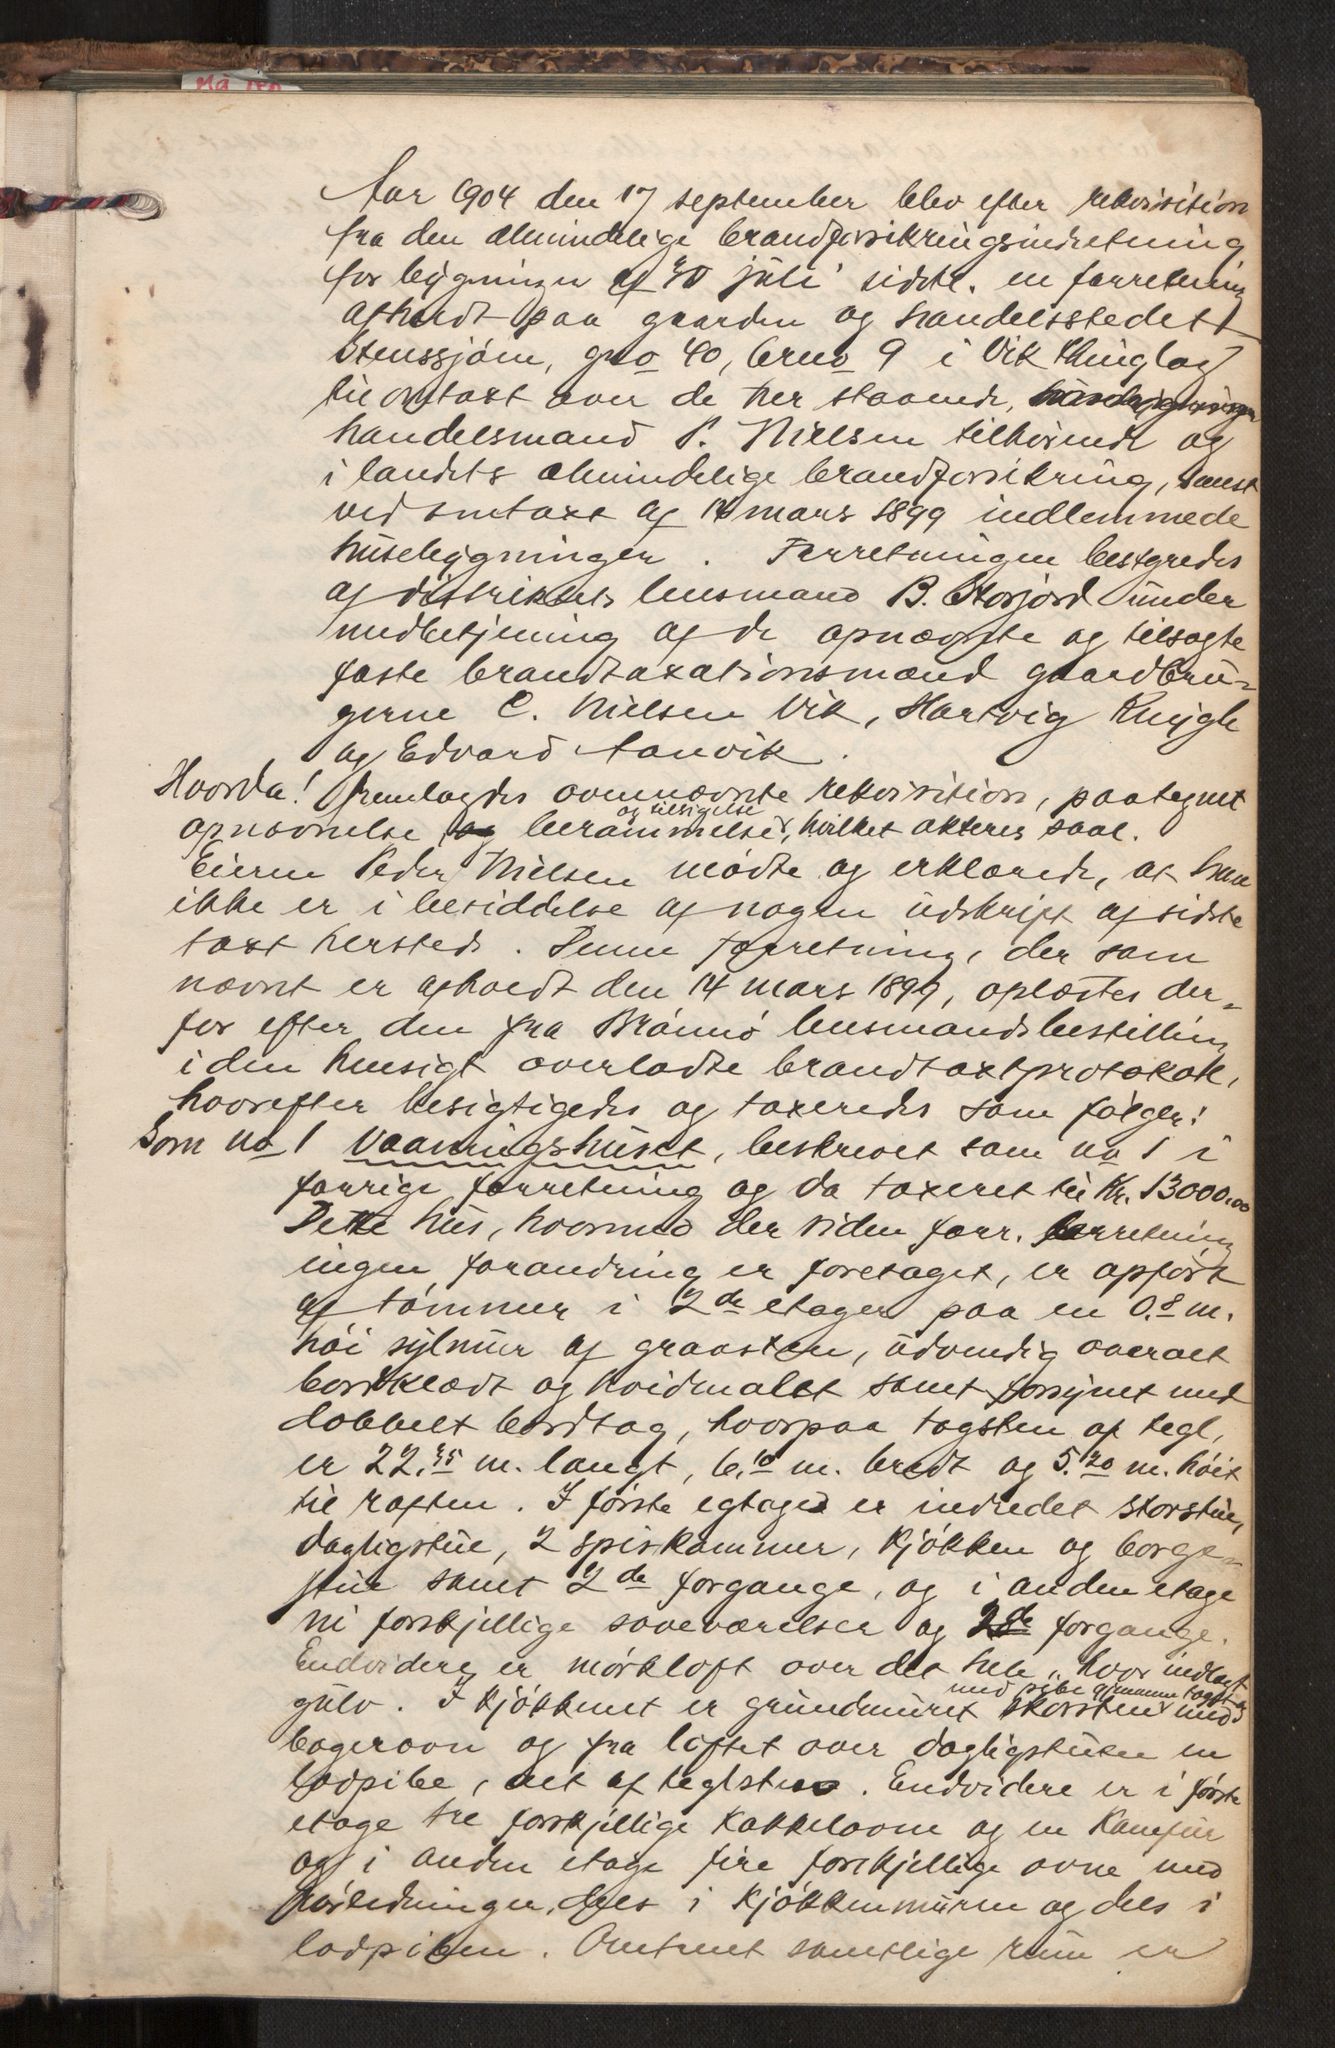 Aar 1904 den 17 september blev efter rekvisition
fra den almindelige brandforsikringsindretning
for bygninger af 30 juli sidstl. en forretning
afholdt paa gaarden og handelsstedet
Stenssjøen, gno 40, brno 9 i Vik thinglag
til omtaxt over de her staaende,
handelsmand P. Nielsen tilhørende og
i landets almindelige brandforsikring, senest
ved omtaxt af 14 mars 1899 indlemmede
husebygninger. Forretningen bestyredes
af distriktets lensmand B. Storjord under
medbetjening af de opnævnte og tilsagte
faste brandtaxationsmænd gaardbru-
gerne C. Nielsen Vik, Hartvig
og Edvard Aanvik.
Hvorda! Fremlagdes ovennævnte rekvisition, paategnet
opnævnelse, berammelse og tilsigelse, hvilket akteres saal.
Eieren Peder Nielsen mødte og erklærede, at han
ikke er i besiddelse af nogen udskrift af sidste
taxt hersteds. Denne forretning, der som
nævnt er afholdt den 14 mars 1899, oplæstes der-
for efter den fra Brønnø lensmandsbestilling
i den hensigt overladte brandtaxtprotokol,
hvorefter besigtigedes og taxeredes som følger:
Som no 1 Vaaningshuset, beskrevet som no 1 i
forrige forretning og da taxeret til Kr. 13000.00
Dette hus, hvormed der siden forr. forretning
ingen forandring er foretaget, er opført
af tømmer i 2de etager paa en 0.8 m.
høi sylmur af graasten, udvendig overalt
bordklædt og hvidmalet samt forsynet med
dobbelt bordtag, hvorpaa tagsten af tegl,
er 22.35 m. langt, 6.10 m. bredt og 5.20 m. høit
til raften. I første egtage er indredet storstue,
dagligstue, 2 spiskammer, kjøkken og borge-
stue samt 2de forgange, og i anden etage
ni forskjellige soveværelser og 2de forgange.
Endvidere er mørkloft over det hele, hvor indlagt
gulv. I kjøkkenet er grundmuret skorsten med pibe gjennem taget og med
bagerovn og fra loftet over dagligstuen en
lodpibe, alt af teglsten. Endvidere er i første
etage tre forskjellige kakkelovne og en kamfur
og i anden etage fire forskjellige ovne med
rørledninger, dels i kjøkkenmuren og dels i
lodpiben. Omtrent samtlige rum er